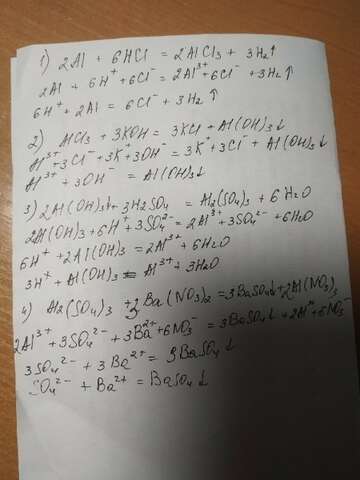 1) 2Al + 6HCl = 2AlCl3 + 3H2↑
2Al + 6H⁺ + 6Cl⁻ = 2Al³⁺ + 6Cl⁻ + 3H2↑
6H⁺ + 2Al = 6Cl⁻ + 3H2↑
2) AlCl3 + 3KOH = 3KCl + Al(OH)3↓
Al³⁺ + 3Cl⁻ + 3K⁺ + 3OH⁻ = 3K⁺ + 3Cl⁻ + Al(OH)3↓
Al³⁺ + 3OH⁻ = Al(OH)3↓
3) 2Al(OH)3↓ + 3H2SO4 = Al2(SO4)3 + 6H2O
2Al(OH)3 + 6H⁺ + 3SO4²⁻ = 2Al³⁺ + 3SO4²⁻ + 6H2O
6H⁺ + 2Al(OH)3 = 2Al³⁺ + 6H2O
3H⁺ + Al(OH)3 = Al³⁺ + 3H2O
4) Al2(SO4)3 + 3Ba(NO3)2 = 3BaSO4↓ + 2Al(NO3)3
2Al³⁺ + 3SO4²⁻ + 3Ba²⁺ + 6NO3⁻ = 3BaSO4↓ + 2Al³⁺ + 6NO3⁻
3SO4²⁻ + 3Ba²⁺ = 3BaSO4↓
SO4²⁻ + Ba²⁺ = BaSO4↓